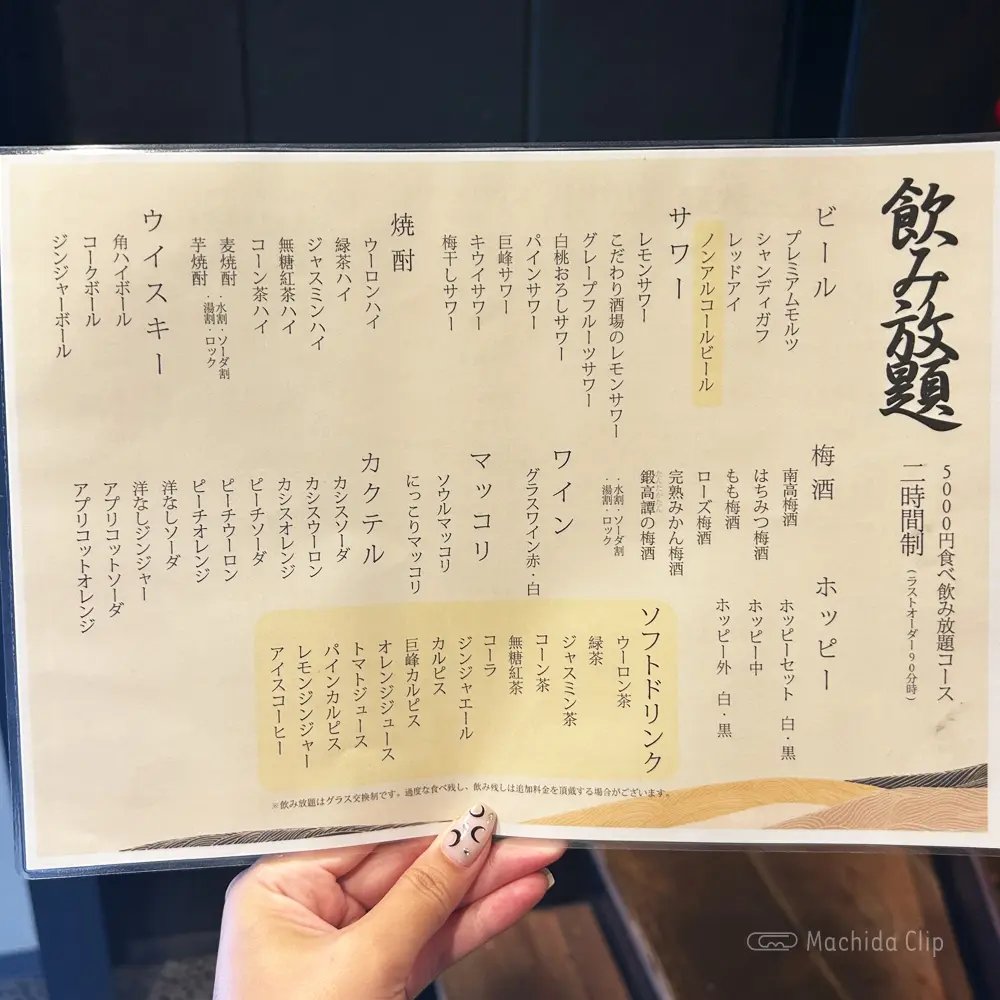 飲み放題
5000円食べ飲み放題コース
二時間制（ラストオーダー90分時）
ビール
プレミアムモルツ
シャンディガフ
レッドアイ
ノンアルコールビール
サワー
レモンサワー
こだわり酒場のレモンサワー
グレープフルーツサワー
白桃おろしサワー
パインサワー
巨峰サワー
キウイサワー
梅干しサワー
焼酎
ウーロンハイ
緑茶ハイ
ジャスミンハイ
無糖紅茶ハイ
コーン茶ハイ
麦焼酎
芋焼酎
・水割・ソーダ割
・湯割・ロック
ウイスキー
角ハイボール
コークボール
ジンジャーボール
梅酒
南高梅酒
はちみつ梅酒
もも梅酒
ローズ梅酒
完熟みかん梅酒
鍛高譚の梅酒
・水割・ソーダ割
・湯割・ロック
ホッピー
ホッピーセット 白・黒
ホッピー中
ホッピー外 白・黒
ワイン
グラスワイン赤・白
マッコリ
ソウルマッコリ
にっこりマッコリ
カクテル
カシスソーダ
カシスウーロン
カシスオレンジ
ピーチソーダ
ピーチウーロン
ピーチオレンジ
洋なしソーダ
洋なしジンジャー
アプリコットソーダ
アプリコットオレンジ
ソフトドリンク
ウーロン茶
緑茶
ジャスミン茶
コーン茶
無糖紅茶
コーラ
ジンジャエール
カルピス
巨峰カルピス
オレンジジュース
トマトジュース
パインカルピス
レモンジンジャー
アイスコーヒー
※飲み放題はグラス交換制です。過度な食べ残し、飲み残しは追加料金を頂戴する場合がございます。
Machida Clip